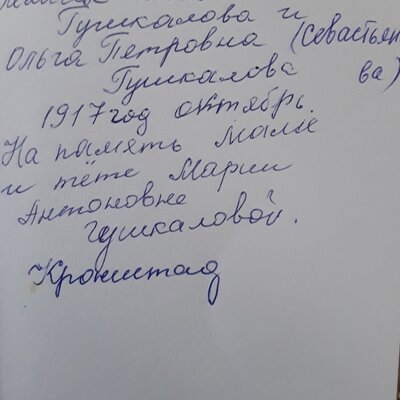 Гушкалова и
Ольга Петровна (Севастьян
Гушкалова ва)
1917 год октябрь.
На память Мале
и тёте Марии
Антоновне
Гушкаловой.
Кронштад